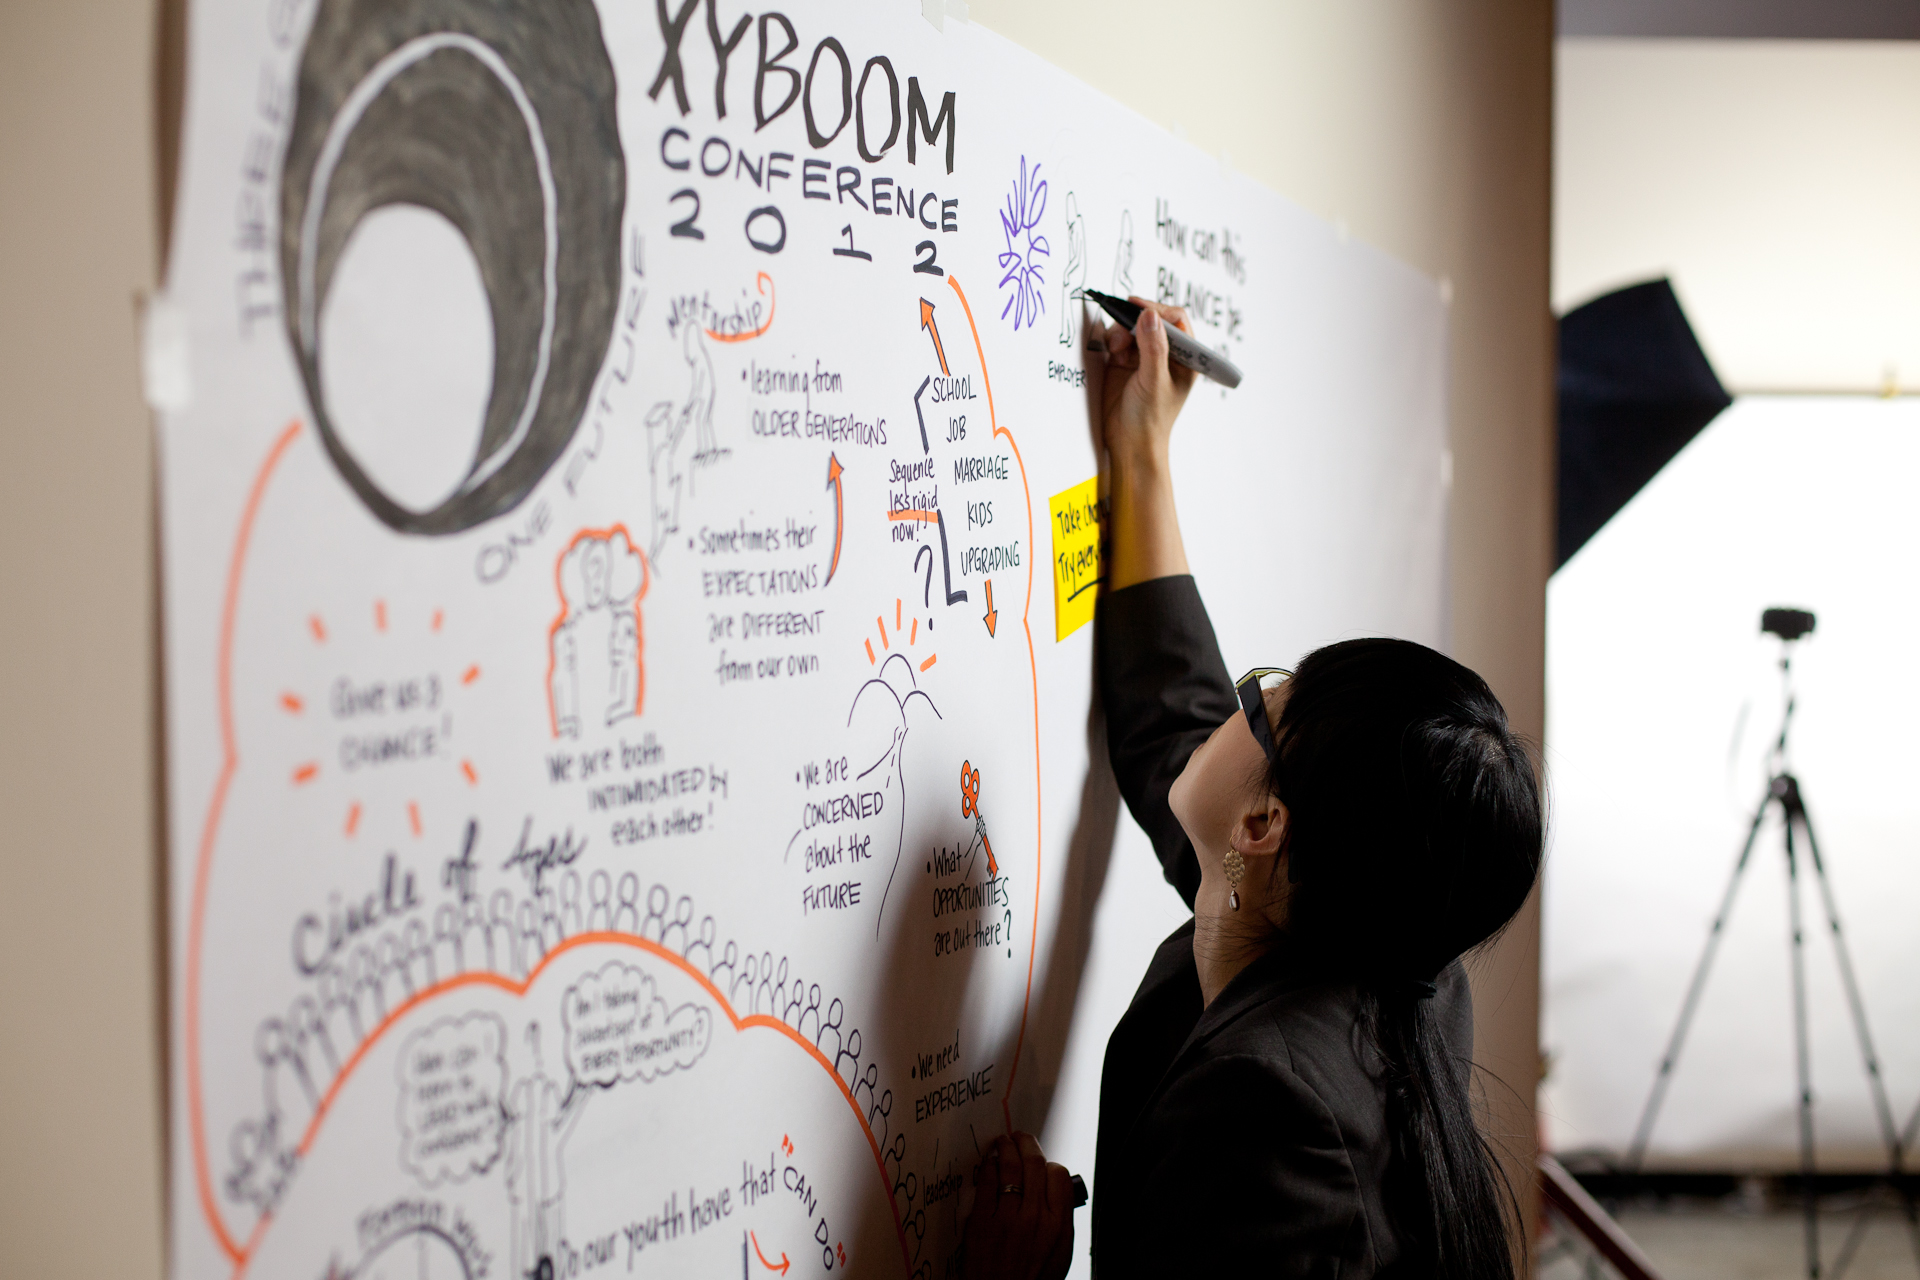 XYBOOM
CONFERENCE
2012
ONE FUTURE
Mentorship
• learning from
OLDER GENERATIONS
• Sometimes their
EXPECTATIONS
are DIFFERENT
from our own
SCHOOL
JOB
MARRIAGE
KIDS
UPGRADING
Sequence
less rigid
now!
?
How can this
BALANCE be
EMPLOYER
Take
Try
Give us a
CHANCE!
We are both
INTIMIDATED by
each other!
• We are
CONCERNED
about the
FUTURE
• What
OPPORTUNITIES
are out there?
Circle of Ages
Am I taking
advantage of
EVERY OPPORTUNITY?
How can I
learn to
LEAD with
confidence?
• We need
EXPERIENCE
leadership
Do our youth have that "CAN DO"